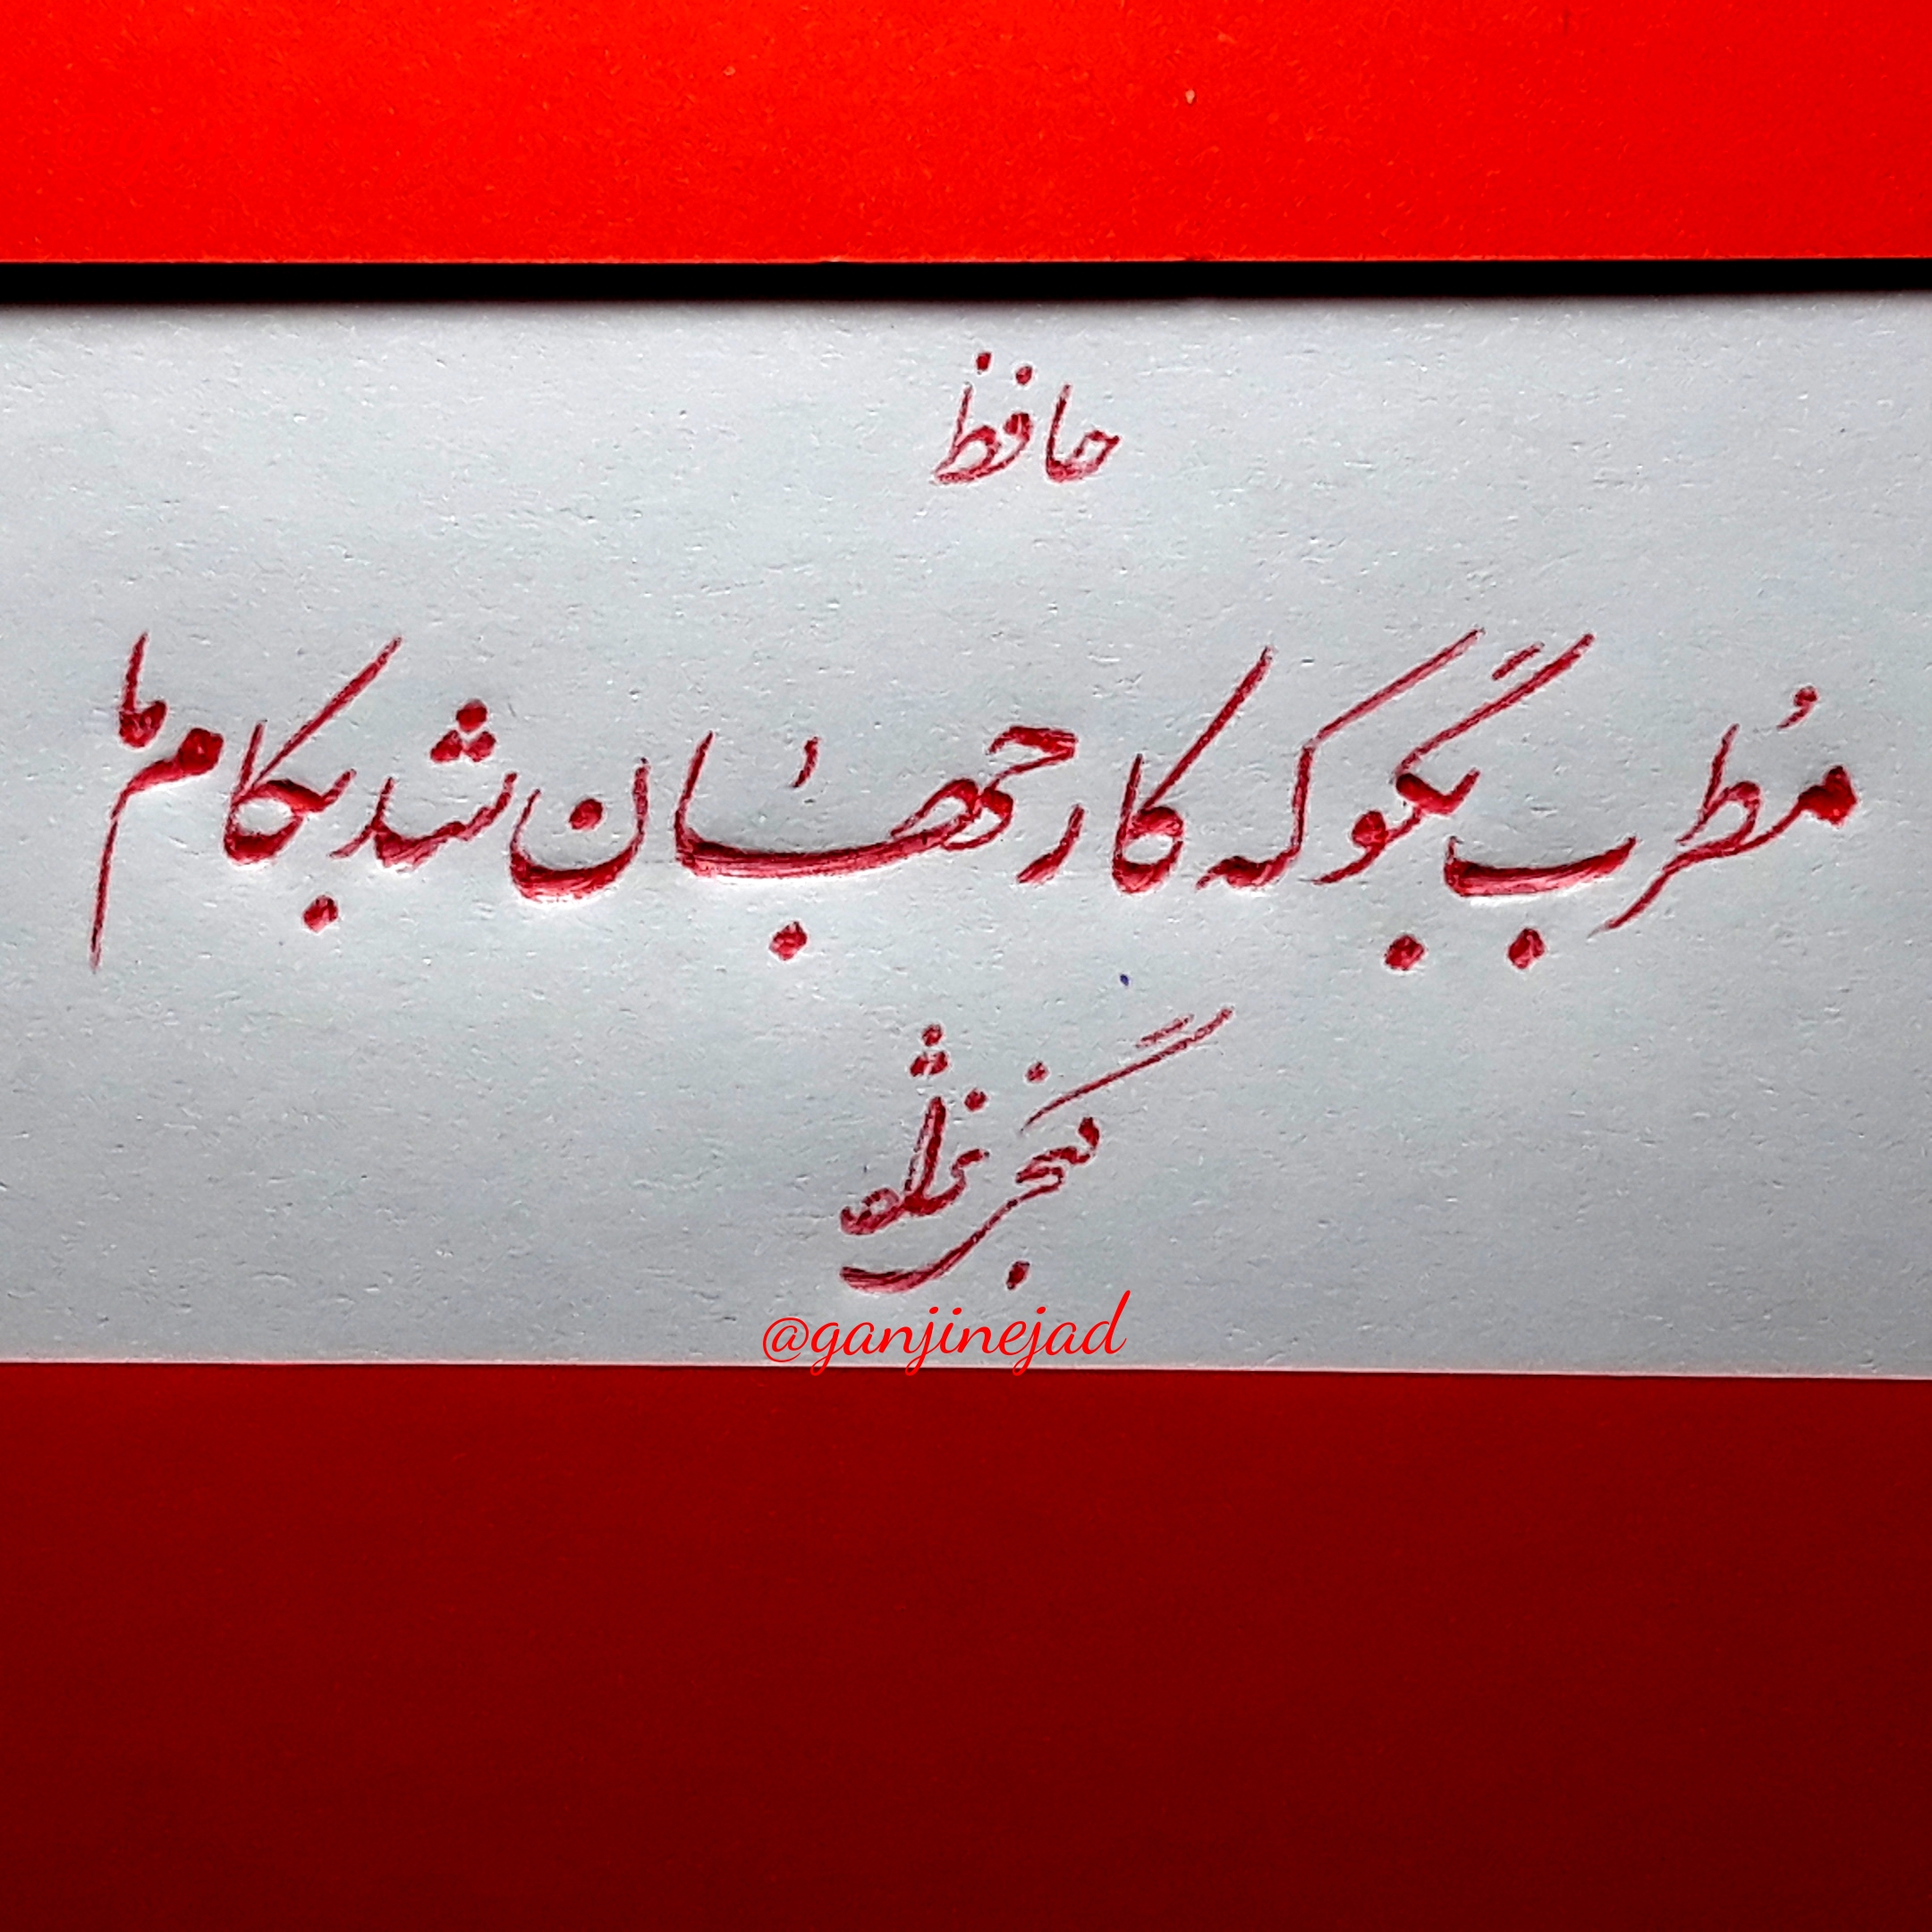 حافظ
مُطرب بگو که کار جهان شد بکام ما
گنجی نژاد
@ganjinejad